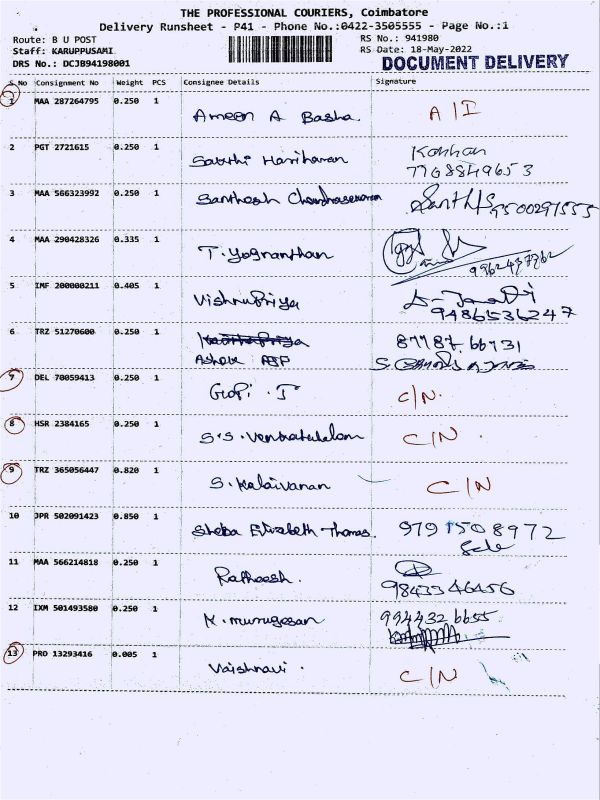 THE PROFESSIONAL COURIERS, Coimbatore
Delivery Runsheet - P41 - Phone No.:0422-3505555 - Page No.:1
Route: B U POST RS No.: 941980
Staff: KARUPPUSAMI RS Date: 18-May-2022
DRS No.: DCJB94198001 DOCUMENT DELIVERY
S No Consignment No Weight PCS Consignee Details Signature
1 MAA 287264795 0.250 1
Ameen A Basha. A/I
2 PGT 2721615 0.250 1 Kannan
Sakthi Hariharan 7708849653
3 MAA 566323992 0.250 1
Santhosh Chandrasekaran 9500291555
4 MAA 290428326 0.335 1
T. Yognanthan
5 IMF 200000211 0.405 1
VishnuPriya 9486536247
6 TRZ 51270600 0.250 1 87787 66731
Ashok
7 DEL 70059413 0.250 1
Gopi . J C/N.
8 HSR 2384165 0.250 1
S.S. C/N .
9 TRZ 365056447 0.820 1
S. Kalaivanan C/N
10 JPR 502091423 0.850 1
Sheba Elizabeth Thomas. 9791508972
11 MAA 566214818 0.250 1
Ratheesh. 9843346456
12 IXM 501493580 0.250 1 994432 6655
K. murugesan
13 PRO 13293416 0.005 1
Vaishnavi . C/N